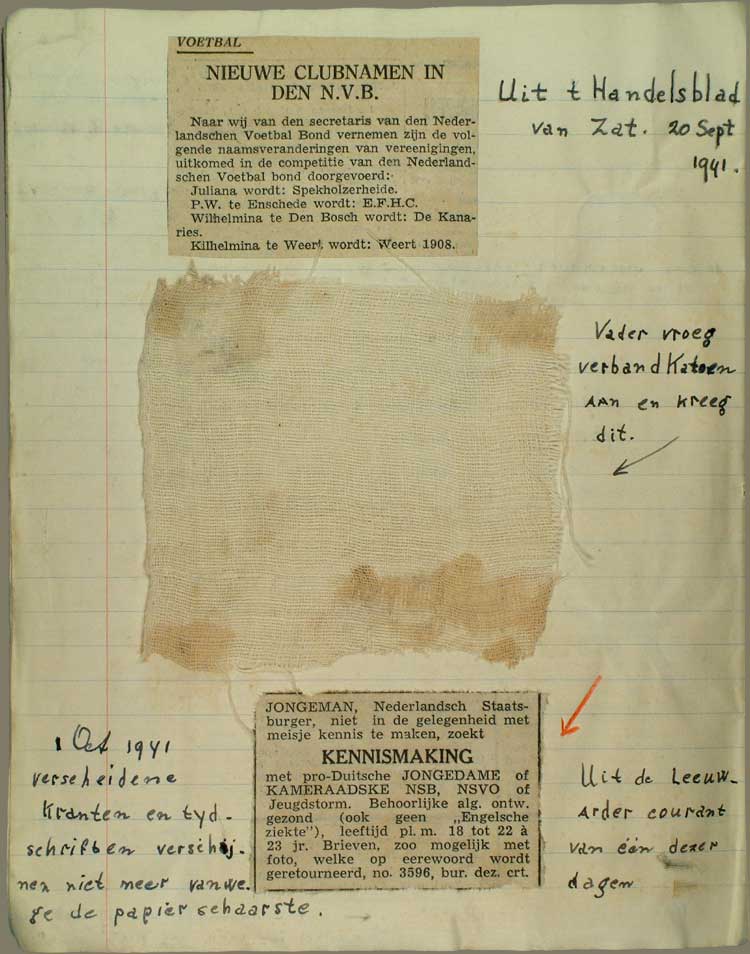 VOETBAL
NIEUWE CLUBNAMEN IN
DEN N.V.B.
Naar wij van den secretaris van den Neder-
landschen Voetbal Bond vernemen zijn de vol-
gende naamsveranderingen van vereenigingen,
uitkomed in de competitie van den Nederland-
schen Voetbal bond doorgevoerd:
Juliana wordt: Spekholzerheide.
P.W. te Enschede wordt: E.F.H.C.
Wilhelmina te Den Bosch wordt: De Kana-
ries.
Kilhelmina te Weert wordt: Weert 1908.
Uit t Handelsblad
van Zat. 20 Sept
1941.
Vader vroeg
verband Katoen
AAN en kreeg
dit.
JONGEMAN, Nederlandsch Staats-
burger, niet in de gelegenheid met
meisje kennis te maken, zoekt
KENNISMAKING
met pro-Duitsche JONGEDAME of
KAMERAADSKE NSB, NSVO of
Jeugdstorm. Behoorlijke alg. ontw.
gezond (ook geen „Engelsche
ziekte"), leeftijd pl. m. 18 tot 22 à
23 jr. Brieven, zoo mogelijk met
foto, welke op eerewoord wordt
geretourneerd, no. 3596, bur. dez. crt.
1 Oct 1941
verscheidene
Kranten en tyd-
schriften verschij-
nen niet meer vanwe-
ge de papier schaarste.
Uit de Leeuw-
arder courant
van één dezer
dagen